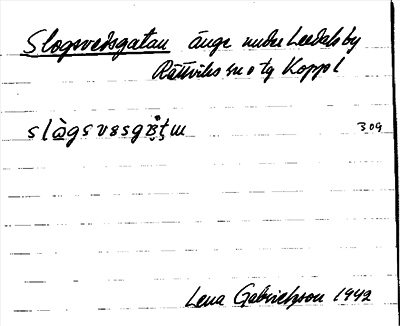 Slogsvedsgatan änge under Leedals by
Rättviks sn o tg Kopp l
slàgsvesgat̥m 309
Lena Gabrielsson 1942